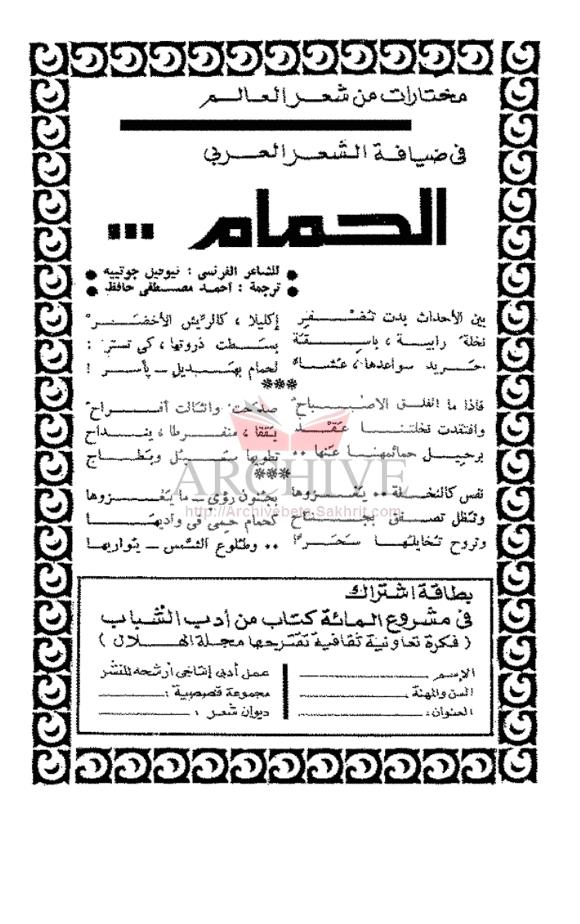 مختارات من شعر العالم
في ضيافة الشعر العربي
الحمام ...
للشاعر الفرنسى : تيوفيل جوتييه
ترجمة : احمد مصطفى حافظ
بين الأحداث بدت تضفر إكليلا ، كالريش الأخضر
نخلة رابية ، باسقة بسطت ذروتها ، كى تستر :
سواعدها ، عشا لحمام بهديل – يأسر !
***
فاذا ما انفلق الاصباح صدحت وانثالت أفراح
وافتقدت نخلتنا عقدا يققا ، منفرطا ، ينداح
برحيل حمائمها عنها ..
***
نفس كالنخلة .. يغزوها بجنون رؤى – ما يغزوها
وتظل تصفق بجناح كحمام حمى فى واديها
وتروح تخايلها سحرا .. وطلوع الشمس – يواريها
ARCHIVE
http://Archivebeta.Sakhrit.com
بطاقة اشتراك
في مشروع المائة كتاب من أدب الشباب
( فكرة تعاونية ثقافية تقترحها مجلة الهلال )
الإسم عمل أدبى إنتاجى أرشحه للنشر
السن والمهنة . مجموعة قصصية :
العنوان : ديوان شعر :